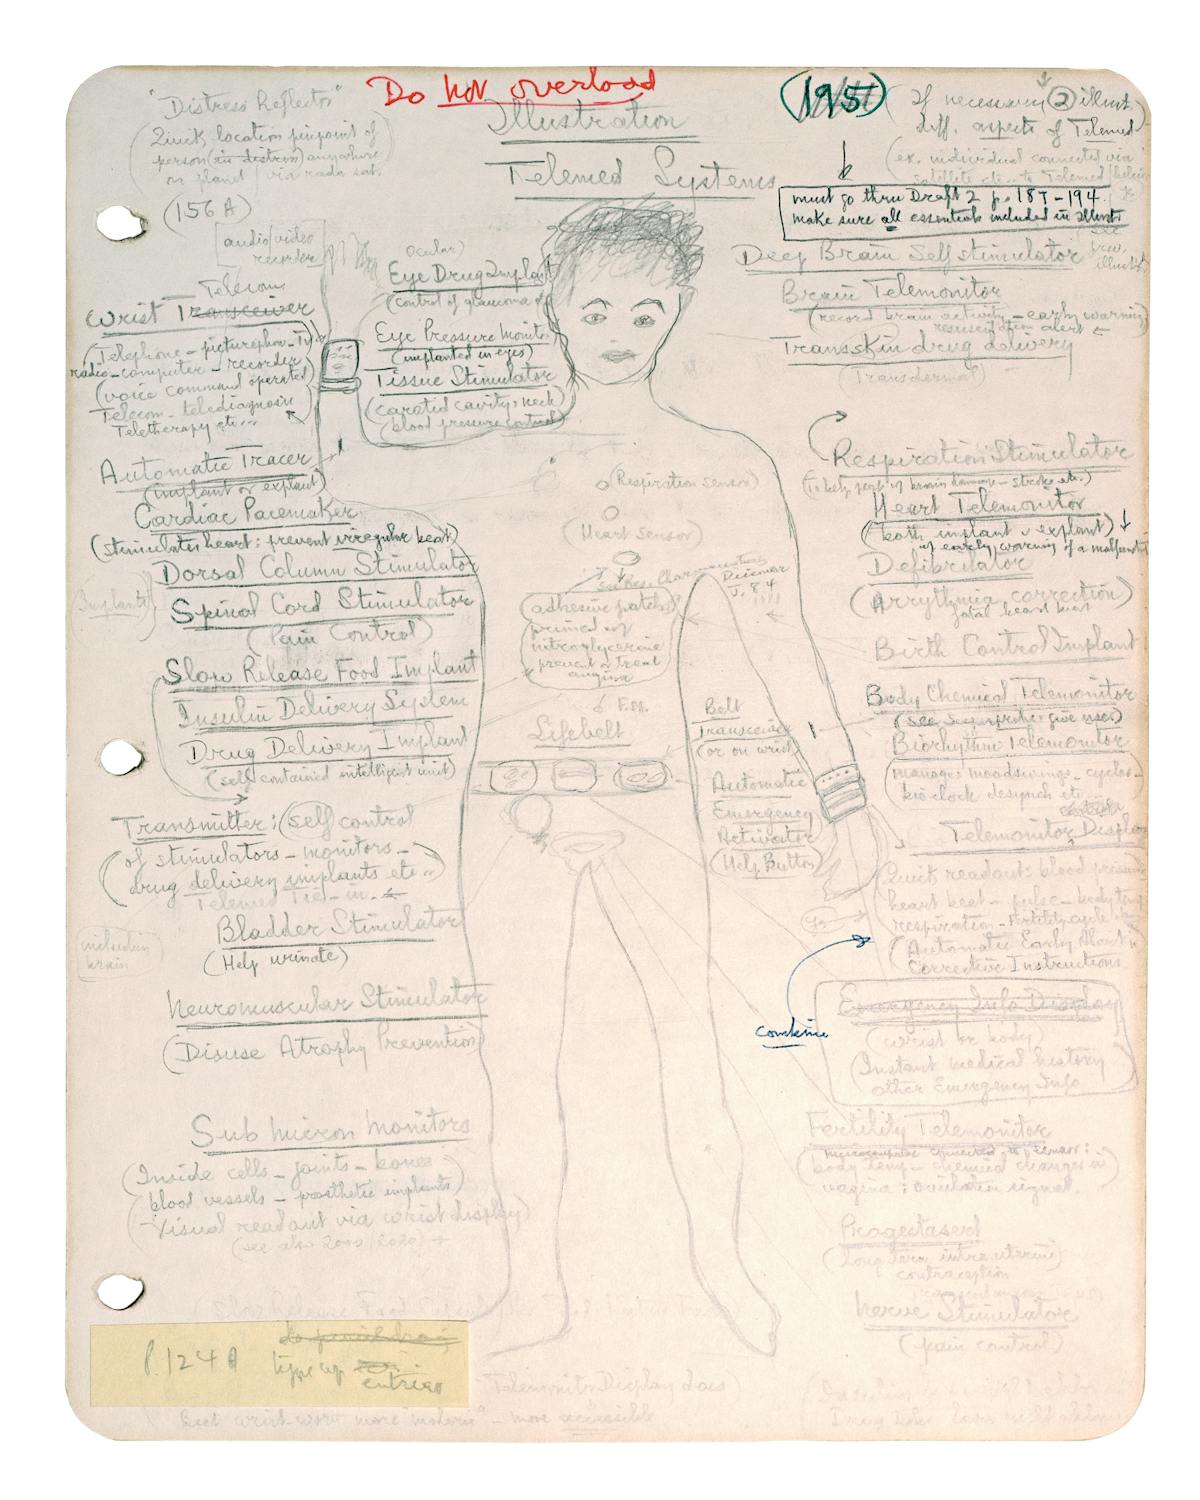 Do not overload
Illustration
Telemed Systems
"Distress Reflector"
(Quick location pinpoint of
person (in distress) anywhere
on planet / via radio sat.
(156 A)
[audio/video
recorder]
(195)
If necessary (2) illust.
diff. aspects of Telemed
(ex. individual connected via
satellite etc. to Telemed
must go thru Draft 2 p. 187-194
make sure all essentials included in illust.
see
prev.
illust.
Telecom
Wrist Transceiver
(Telephone - picturephone - TV
radio - computer - recorder
(voice command operated)
Telecom - telediagnosis
Teletherapy etc...
Automatic Tracer
(implant or explant)
Cardiac Pacemaker
(stimulates heart: prevent irregular beat)
Dorsal Column Stimulator
Implants
Spinal Cord Stimulator
(Pain Control)
Slow Release Food Implant
Insulin Delivery System
Drug Delivery Implant
(self contained intelligent unit)
Transmitter: (self control
of stimulators - monitors -
drug delivery implants etc..)
Telemed Tie-in.
Bladder Stimulator
(Help urinate)
including
brain
Neuromuscular Stimulator
(Disuse Atrophy Prevention)
Sub micron monitors
(Inside cells - joints - bones
blood vessels - prosthetic implants)
- Visual readout via wrist display)
(see also 2000/2020)
ocular)
Eye Drug Implant
(control of glaucoma
Eye Pressure Monitor
(implanted in eyes)
Tissue Stimulator
(carotid cavity: neck
(blood pressure control)
(Respiration sensor)
(Heart Sensor)
(adhesive patches
primed w/
nitroglycerine
prevent or treat
angina
Lifebelt
Belt
Transceiver
(or on wrist)
Automatic
Emergency
Activator
(Help Button)
Deep Brain Self stimulator
Brain Telemonitor
(record brain activity - early warning
resuscitation alert
Transskin drug delivery
(Transdermal)
Respiration Stimulator
(To help people w/ brain damage - stroke etc.)
Heart Telemonitor
(both implant & explant)
w/ early warning of a malfunction
Defibrilator
(Arrythmia correction)
fatal heart beat
Birth Control Implant
Body Chemical Telemonitor
Biorhythm Telemonitor
(manages moodswings - cycles -
bioclock designch etc
Telemonitor Display
Quick readout: blood pressure
heart beat - pulse - body temp
respiration - Fertility cycle
(Automatic Early Alert
Corrective Instructions
combine
Emergency Info Display
(wrist or body)
(Instant medical history
other Emergency Info
Fertility Telemonitor
microcomputer connected to sensors:
body temp - chemical changes in
vagina: ovulation signal.
Progestasert
(Long term intrauterine)
contraception
Nerve Stimulator
(pain control)
P.124 A
type up
entries
Telemonitor Display